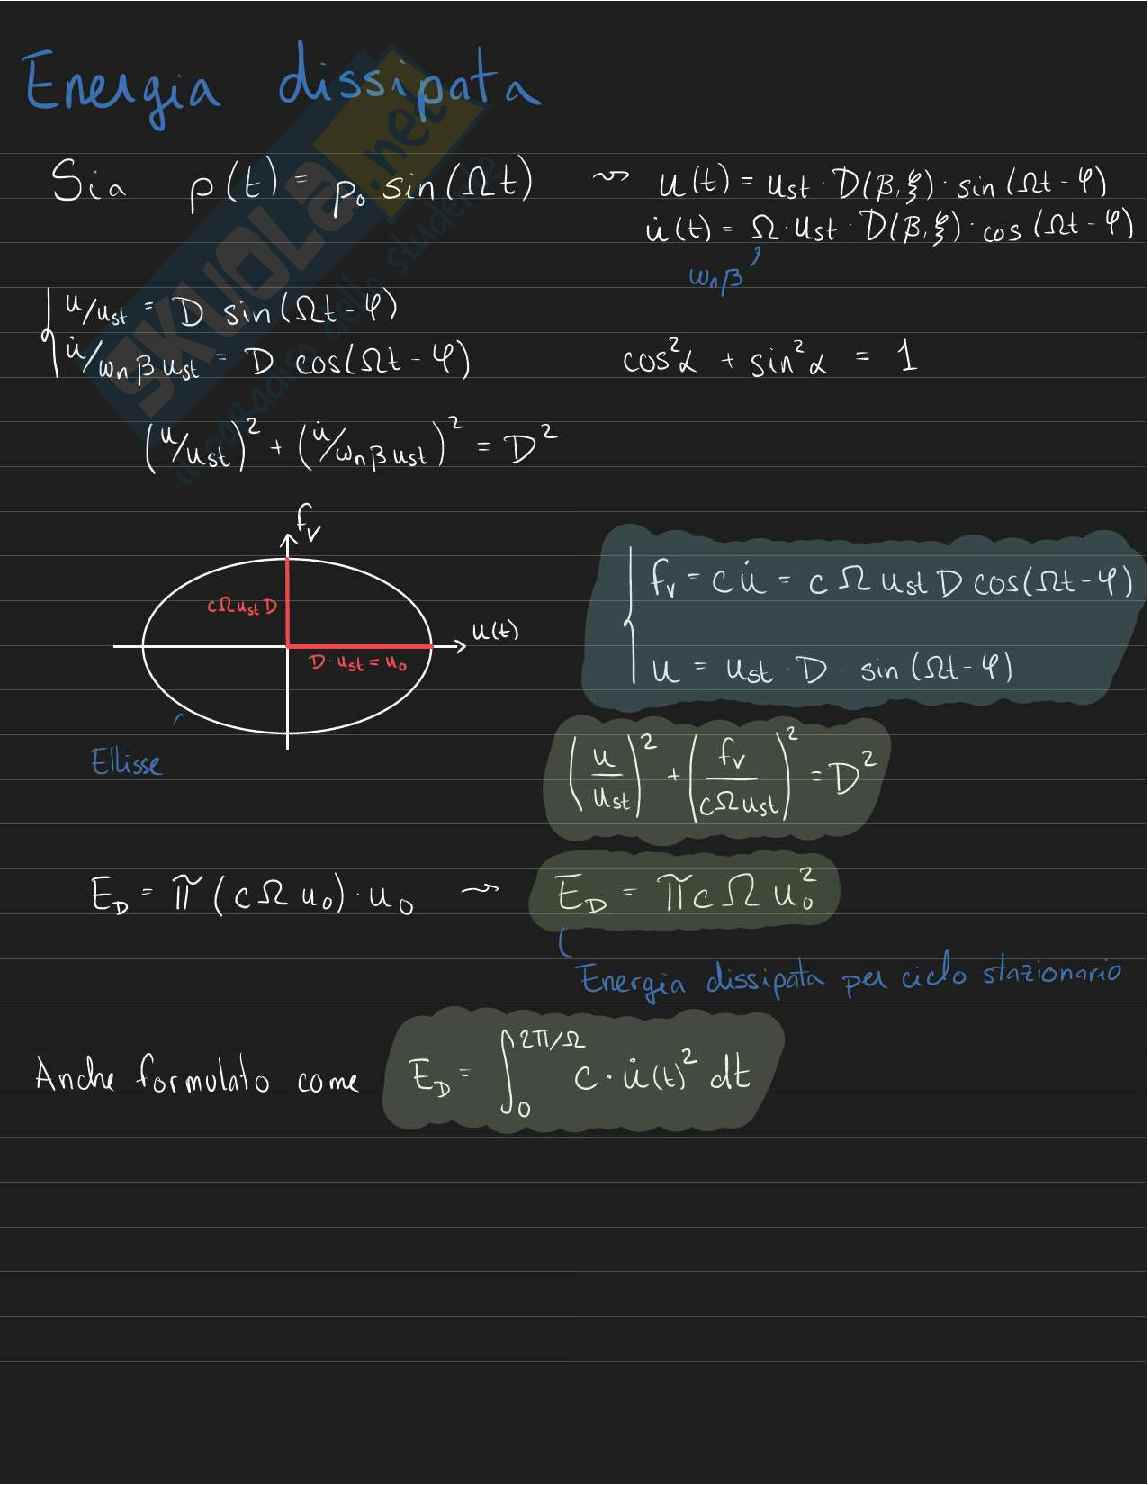 Energia dissipata
Sia p(t) = p₀ sin(Ωt) ⇝ u(t) = ust · D(β,ξ) · sin(Ωt - φ)
u̇(t) = Ω · ust · D(β,ξ) · cos(Ωt - φ)
ωnβ
u/ust = D sin(Ωt - φ)
u̇/ωnβust = D cos(Ωt - φ) cos²α + sin²α = 1
(u/ust)² + (u̇/ωnβust)² = D²
fv
cΩustD
u(t)
D · ust = u₀
Ellisse
fv = cu̇ = cΩustD cos(Ωt - φ)
u = ust · D · sin(Ωt - φ)
(u/ust)² + (fv/cΩust)² = D²
ED = π(cΩu₀) · u₀ ⇝ ED = πcΩu₀²
Energia dissipata per ciclo stazionario
Anche formulato come ED = ∫₀^2π/Ω c · u̇(t)² dt
SKUOLA.net